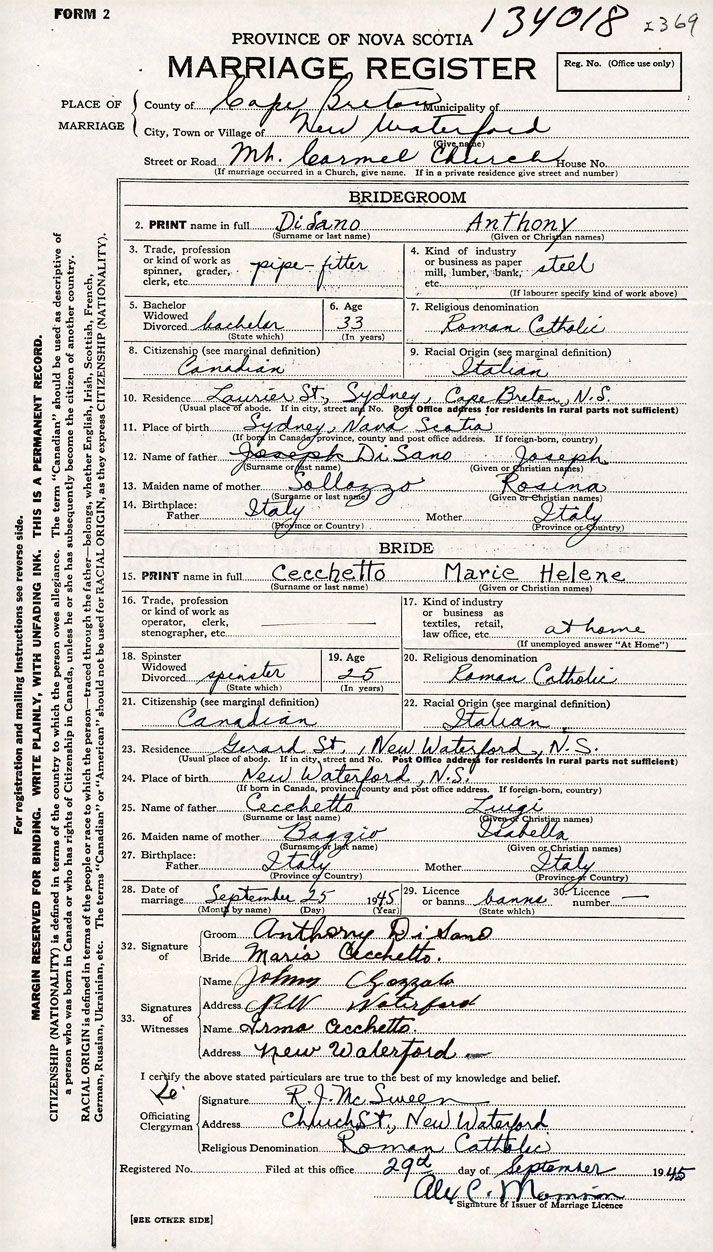 FORM 2
134018
I369
PROVINCE OF NOVA SCOTIA
MARRIAGE REGISTER
Reg. No. (Office use only)
PLACE OF MARRIAGE
County of Cape Breton Municipality of
City, Town or Village of New Waterford
(Give name)
Street or Road Mt. Carmel Church House No.
(If marriage occurred in a Church, give name. If in a private residence give street and number)
BRIDEGROOM
2. PRINT name in full DiSano Anthony
(Surname or last name) (Given or Christian names)
3. Trade, profession or kind of work as spinner, grader, clerk, etc. pipe-fitter
4. Kind of industry or business as paper mill, lumber, bank, etc. steel
(If labourer specify kind of work above)
5. Bachelor Widowed Divorced bachelor
(State which)
6. Age 33
(In years)
7. Religious denomination
Roman Catholic
8. Citizenship (see marginal definition)
Canadian
9. Racial Origin (see marginal definition)
Italian
10. Residence Laurier St., Sydney, Cape Breton, N.S.
(Usual place of abode. If in city, street and No. Post Office address for residents in rural parts not sufficient)
11. Place of birth Sydney, Nova Scotia
(If born in Canada, province, county and post office address. If foreign-born, country)
12. Name of father Joseph DiSano Joseph
(Surname or last name) (Given or Christian names)
13. Maiden name of mother Sollazzo Rosina
(Surname or last name) (Given or Christian names)
14. Birthplace: Father Italy Mother Italy
(Province or Country) (Province or Country)
BRIDE
15. PRINT name in full Cecchetto Marie Helene
(Surname or last name) (Given or Christian names)
16. Trade, profession or kind of work as operator, clerk, stenographer, etc.
17. Kind of industry or business as textiles, retail, law office, etc. at home
(If unemployed answer "At Home")
18. Spinster Widowed Divorced spinster
(State which)
19. Age 25
(In years)
20. Religious denomination
Roman Catholic
21. Citizenship (see marginal definition)
Canadian
22. Racial Origin (see marginal definition)
Italian
23. Residence Gerard St., New Waterford, N.S.
(Usual place of abode. If in city, street and No. Post Office address for residents in rural parts not sufficient)
24. Place of birth New Waterford, N.S.
(If born in Canada, province, county and post office address. If foreign-born, country)
25. Name of father Cecchetto Luigi
(Surname or last name) (Given or Christian names)
26. Maiden name of mother Baggio Isabella
(Surname or last name) (Given or Christian names)
27. Birthplace: Father Italy Mother Italy
(Province or Country) (Province or Country)
28. Date of marriage September 25 1945
(Month by name) (Day) (Year)
29. Licence or banns banns
(State which)
30. Licence number —
32. Signature of
Groom Anthony DiSano
Bride Maria Cecchetto.
33. Signatures of Witnesses
Name Johny Gozzalo
Address N.W Waterford
Name Irma Cecchetto.
Address New Waterford
I certify the above stated particulars are true to the best of my knowledge and belief.
Officiating Clergyman
Signature R.J. McSween
Address Church St., New Waterford
Religious Denomination Roman Catholic
Registered No. Filed at this office 29th day of September 1945
Alex C.
Signature of Issuer of Marriage Licence
[SEE OTHER SIDE]
For registration and mailing instructions see reverse side.
MARGIN RESERVED FOR BINDING. WRITE PLAINLY, WITH UNFADING INK. THIS IS A PERMANENT RECORD.
CITIZENSHIP (NATIONALITY) is defined in terms of the country to which the person owes allegiance. The term "Canadian" should be used as descriptive of
a person who was born in Canada or who has rights of Citizenship in Canada, unless he or she has subsequently become the citizen of another country.
RACIAL ORIGIN is defined in terms of the people or race to which the person—traced through the father—belongs, whether English, Irish, Scottish, French,
German, Russian, Ukrainian, etc. The terms "Canadian" or "American" should not be used for RACIAL ORIGIN, as they express CITIZENSHIP (NATIONALITY).